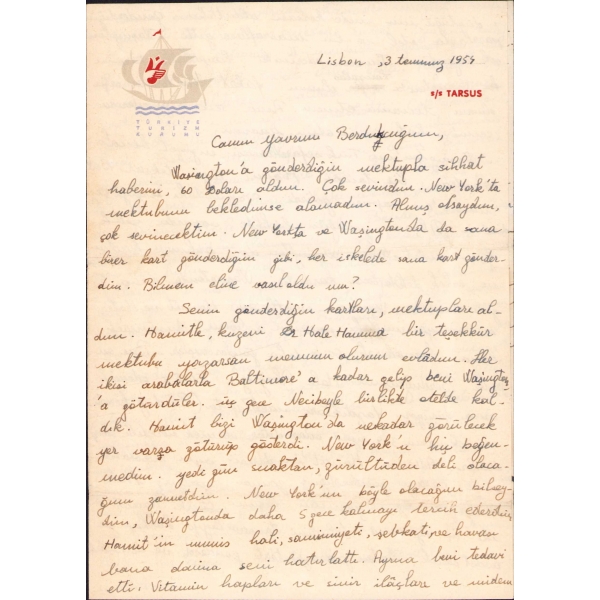 Lisbon, 3 temmuz 1954
s/s TARSUS
TÜRKİYE
TURİZM
KURUMU
Canım yavrum Berdukcuğum,
Waşington'a gönderdiğin mektupla sıhhat
haberini, 60 doları aldım. Çok sevindim. New York'ta
mektubunu bekledimse alamadım. Almış olsaydım,
çok sevinecektim. New Yorkta ve Waşingtonda da sana
birer kart gönderdiğim gibi, her iskelede sana kart gönder-
dim. Bilmem eline vasıl oldu mu?
Senin gönderdiğin kartları, mektupları al-
dım. Hamitle, kuzeni Dr Hale Hanıma bir teşekkür
mektubu yazarsan memnun olurum evlâdım. Her
ikisi arabalarla Baltimore'a kadar gelip beni Waşington
'a götürdüler. üç gece Necibeyle birlikte otelde kal-
dık. Hamit bizi Waşington'da nekadar görülecek
yer varsa götürüp gösterdi. New York'u hiç beğen-
medim. yedi gün sıcaktan, gürültüden deli olaca-
ğımı zannettim. New York'un böyle olacağını bilsey-
dim, Waşingtonda daha 5 gece kalmayı tercih ederdim
Hamit'in munis hali, samimiyeti, şefkati, ve havası
bana daima seni hatırlattı. Ayrıca beni tedavi
etti. Vitamin hapları ve sinir ilâçları ve midem